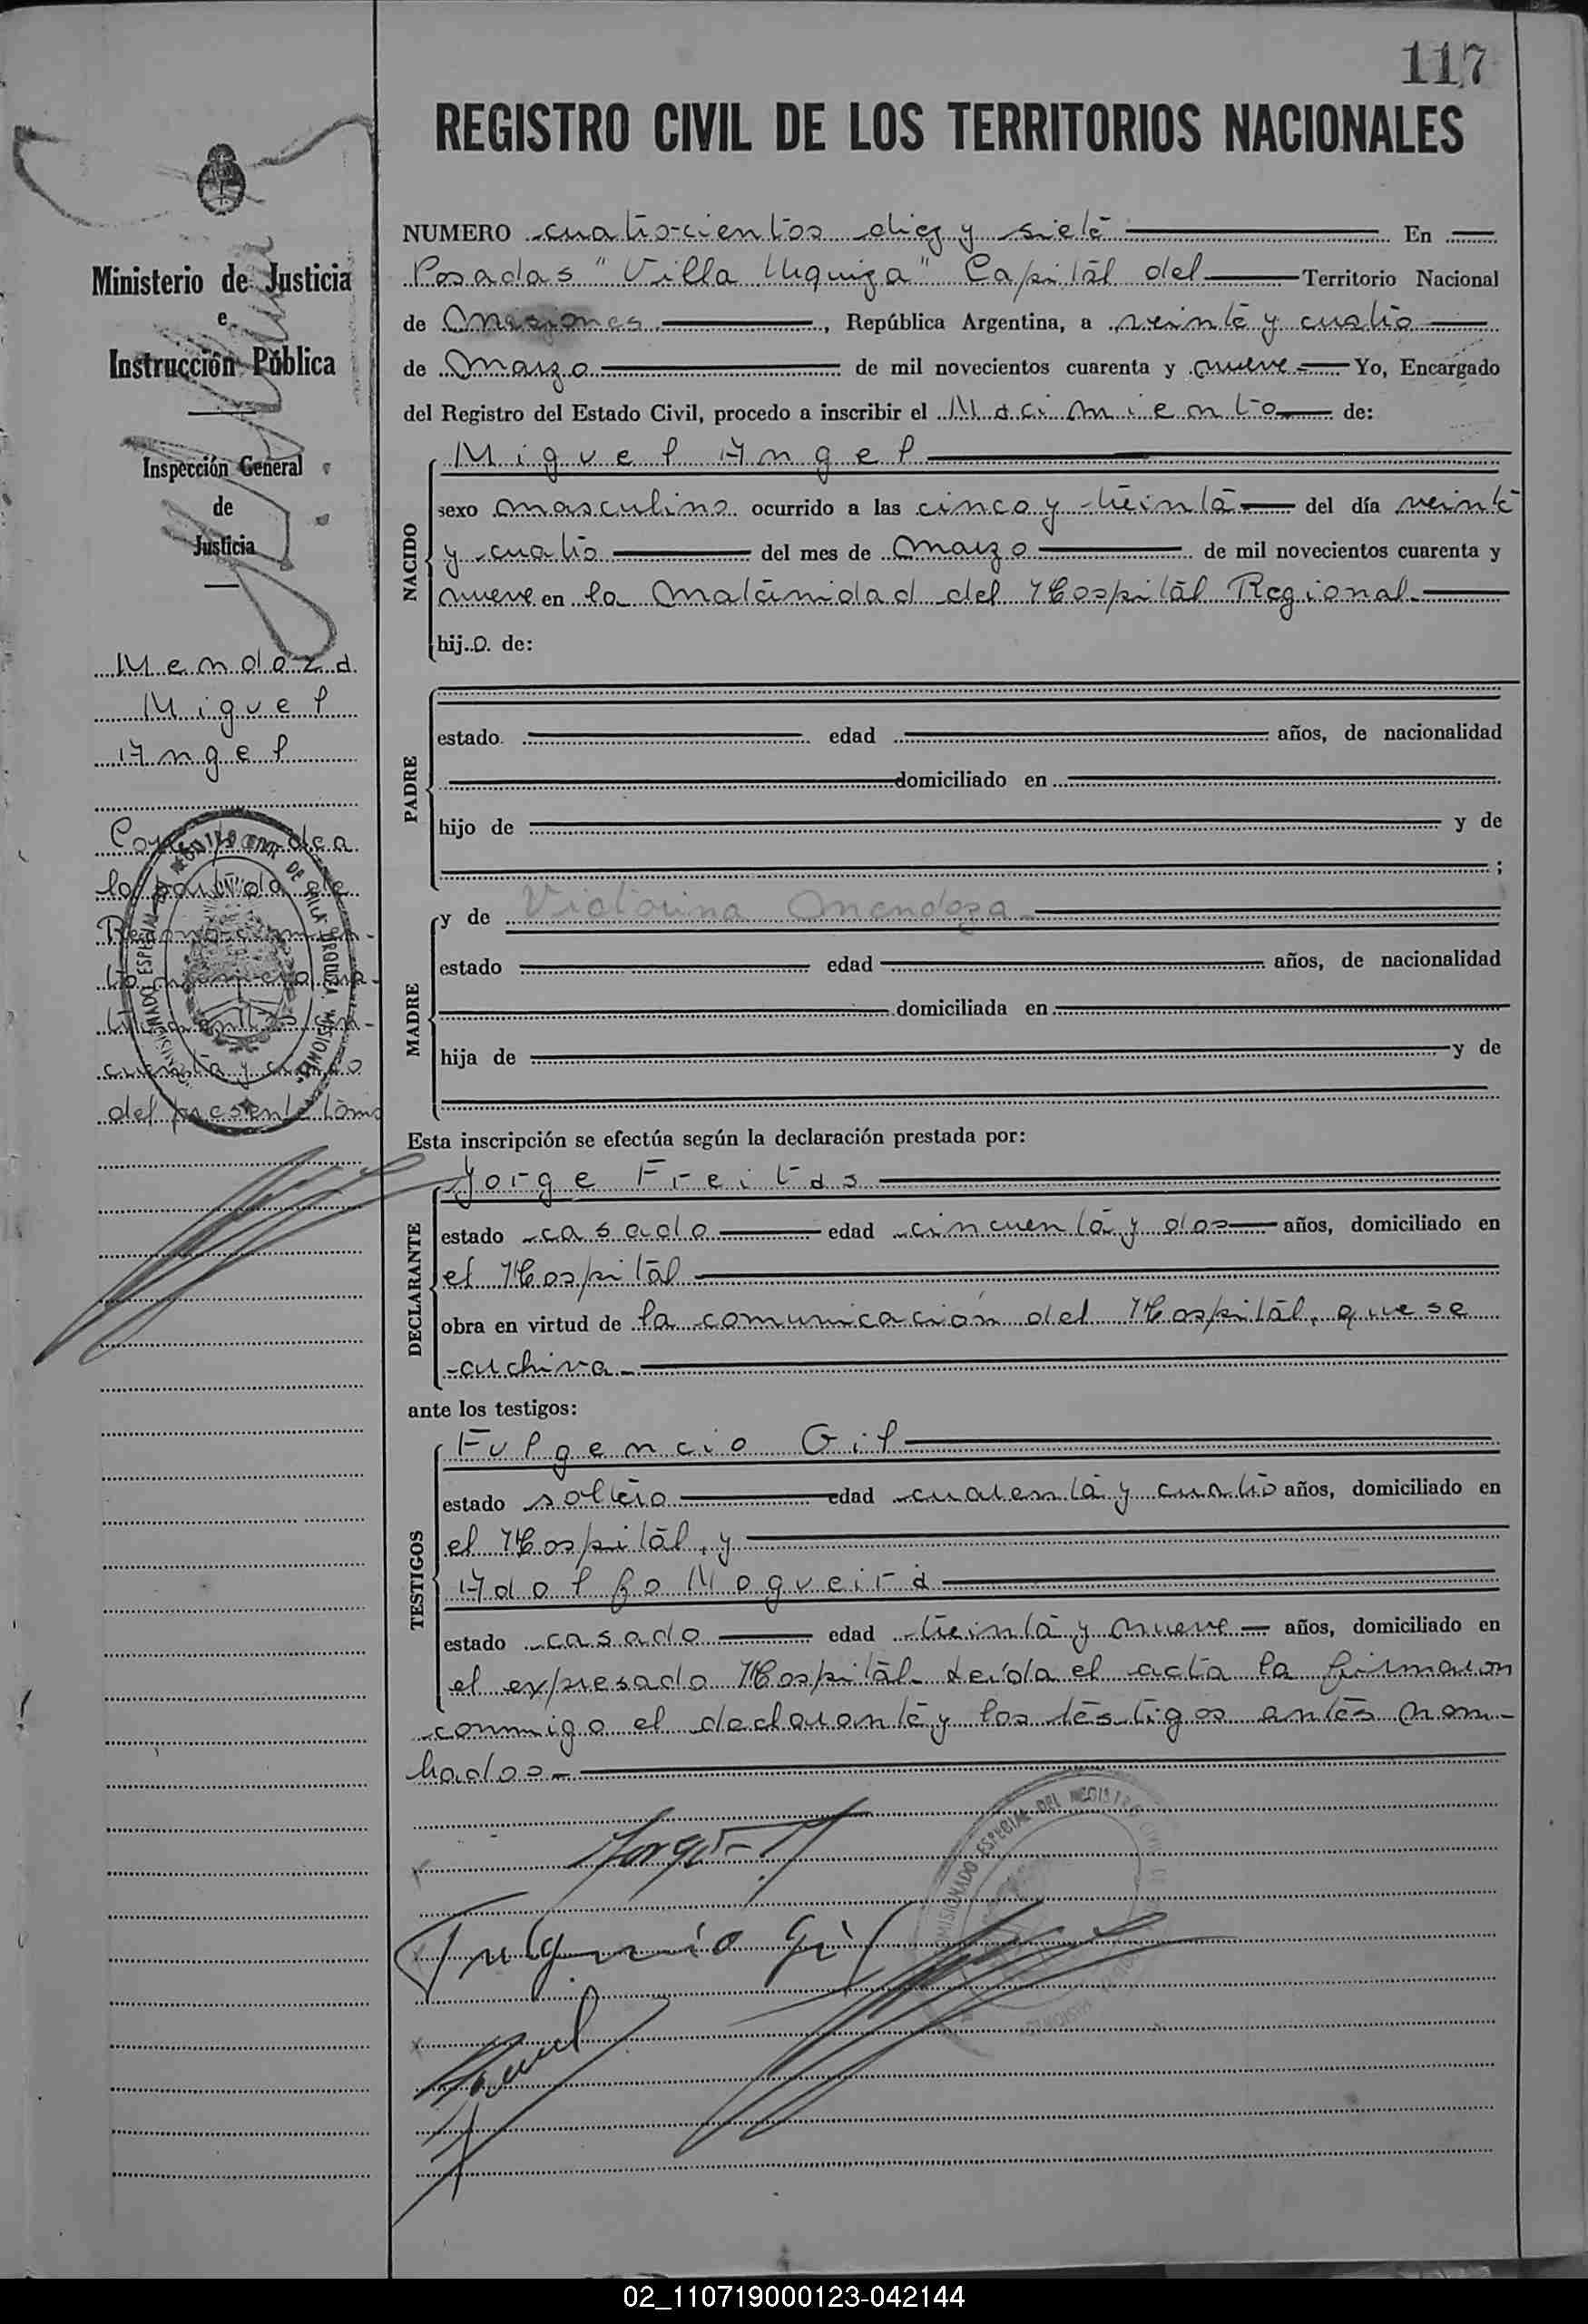 117
REGISTRO CIVIL DE LOS TERRITORIOS NACIONALES
Ministerio de Justicia
e
Instrucción Pública
Inspección General
de
Justicia
Mendoza
Miguel
Angel
Corresponde a
la partida de
Reconocimien-
to número
del presente tomo
COMISIONADO ESPECIAL REGISTRO CIVIL DE VILLA URQUIZA, MISIONES
NUMERO cuatrocientos diez y siete En
Posadas "Villa Urquiza" Capital del Territorio Nacional
de Misiones, República Argentina, a veinte y cuatro
de marzo de mil novecientos cuarenta y nueve Yo, Encargado
del Registro del Estado Civil, procedo a inscribir el Nacimiento de:
NACIDO
Miguel Angel
sexo masculino ocurrido a las cinco y treinta del día veinte
y cuatro del mes de marzo de mil novecientos cuarenta y
nueve en la maternidad del Hospital Regional
hij.o. de:
PADRE
estado edad años, de nacionalidad
domiciliado en
hijo de y de
;
MADRE
y de Victorina Mendoza
estado edad años, de nacionalidad
domiciliada en
hija de y de
Esta inscripción se efectúa según la declaración prestada por:
DECLARANTE
Jorge Freitas
estado casado edad cincuenta y dos años, domiciliado en
el Hospital
obra en virtud de la comunicación del Hospital, que se
archiva.
ante los testigos:
TESTIGOS
Fulgencio Gil
estado soltero edad cuarenta y cuatro años, domiciliado en
el Hospital, y
Adolfo Nogueira
estado casado edad treinta y nueve años, domiciliado en
el expresado Hospital. Leída el acta la firmaron
conmigo el declarante y los testigos antes nom-
brados.
COMISIONADO ESPECIAL DEL REGISTRO CIVIL
Fulgencio Gil
02_110719000123-042144